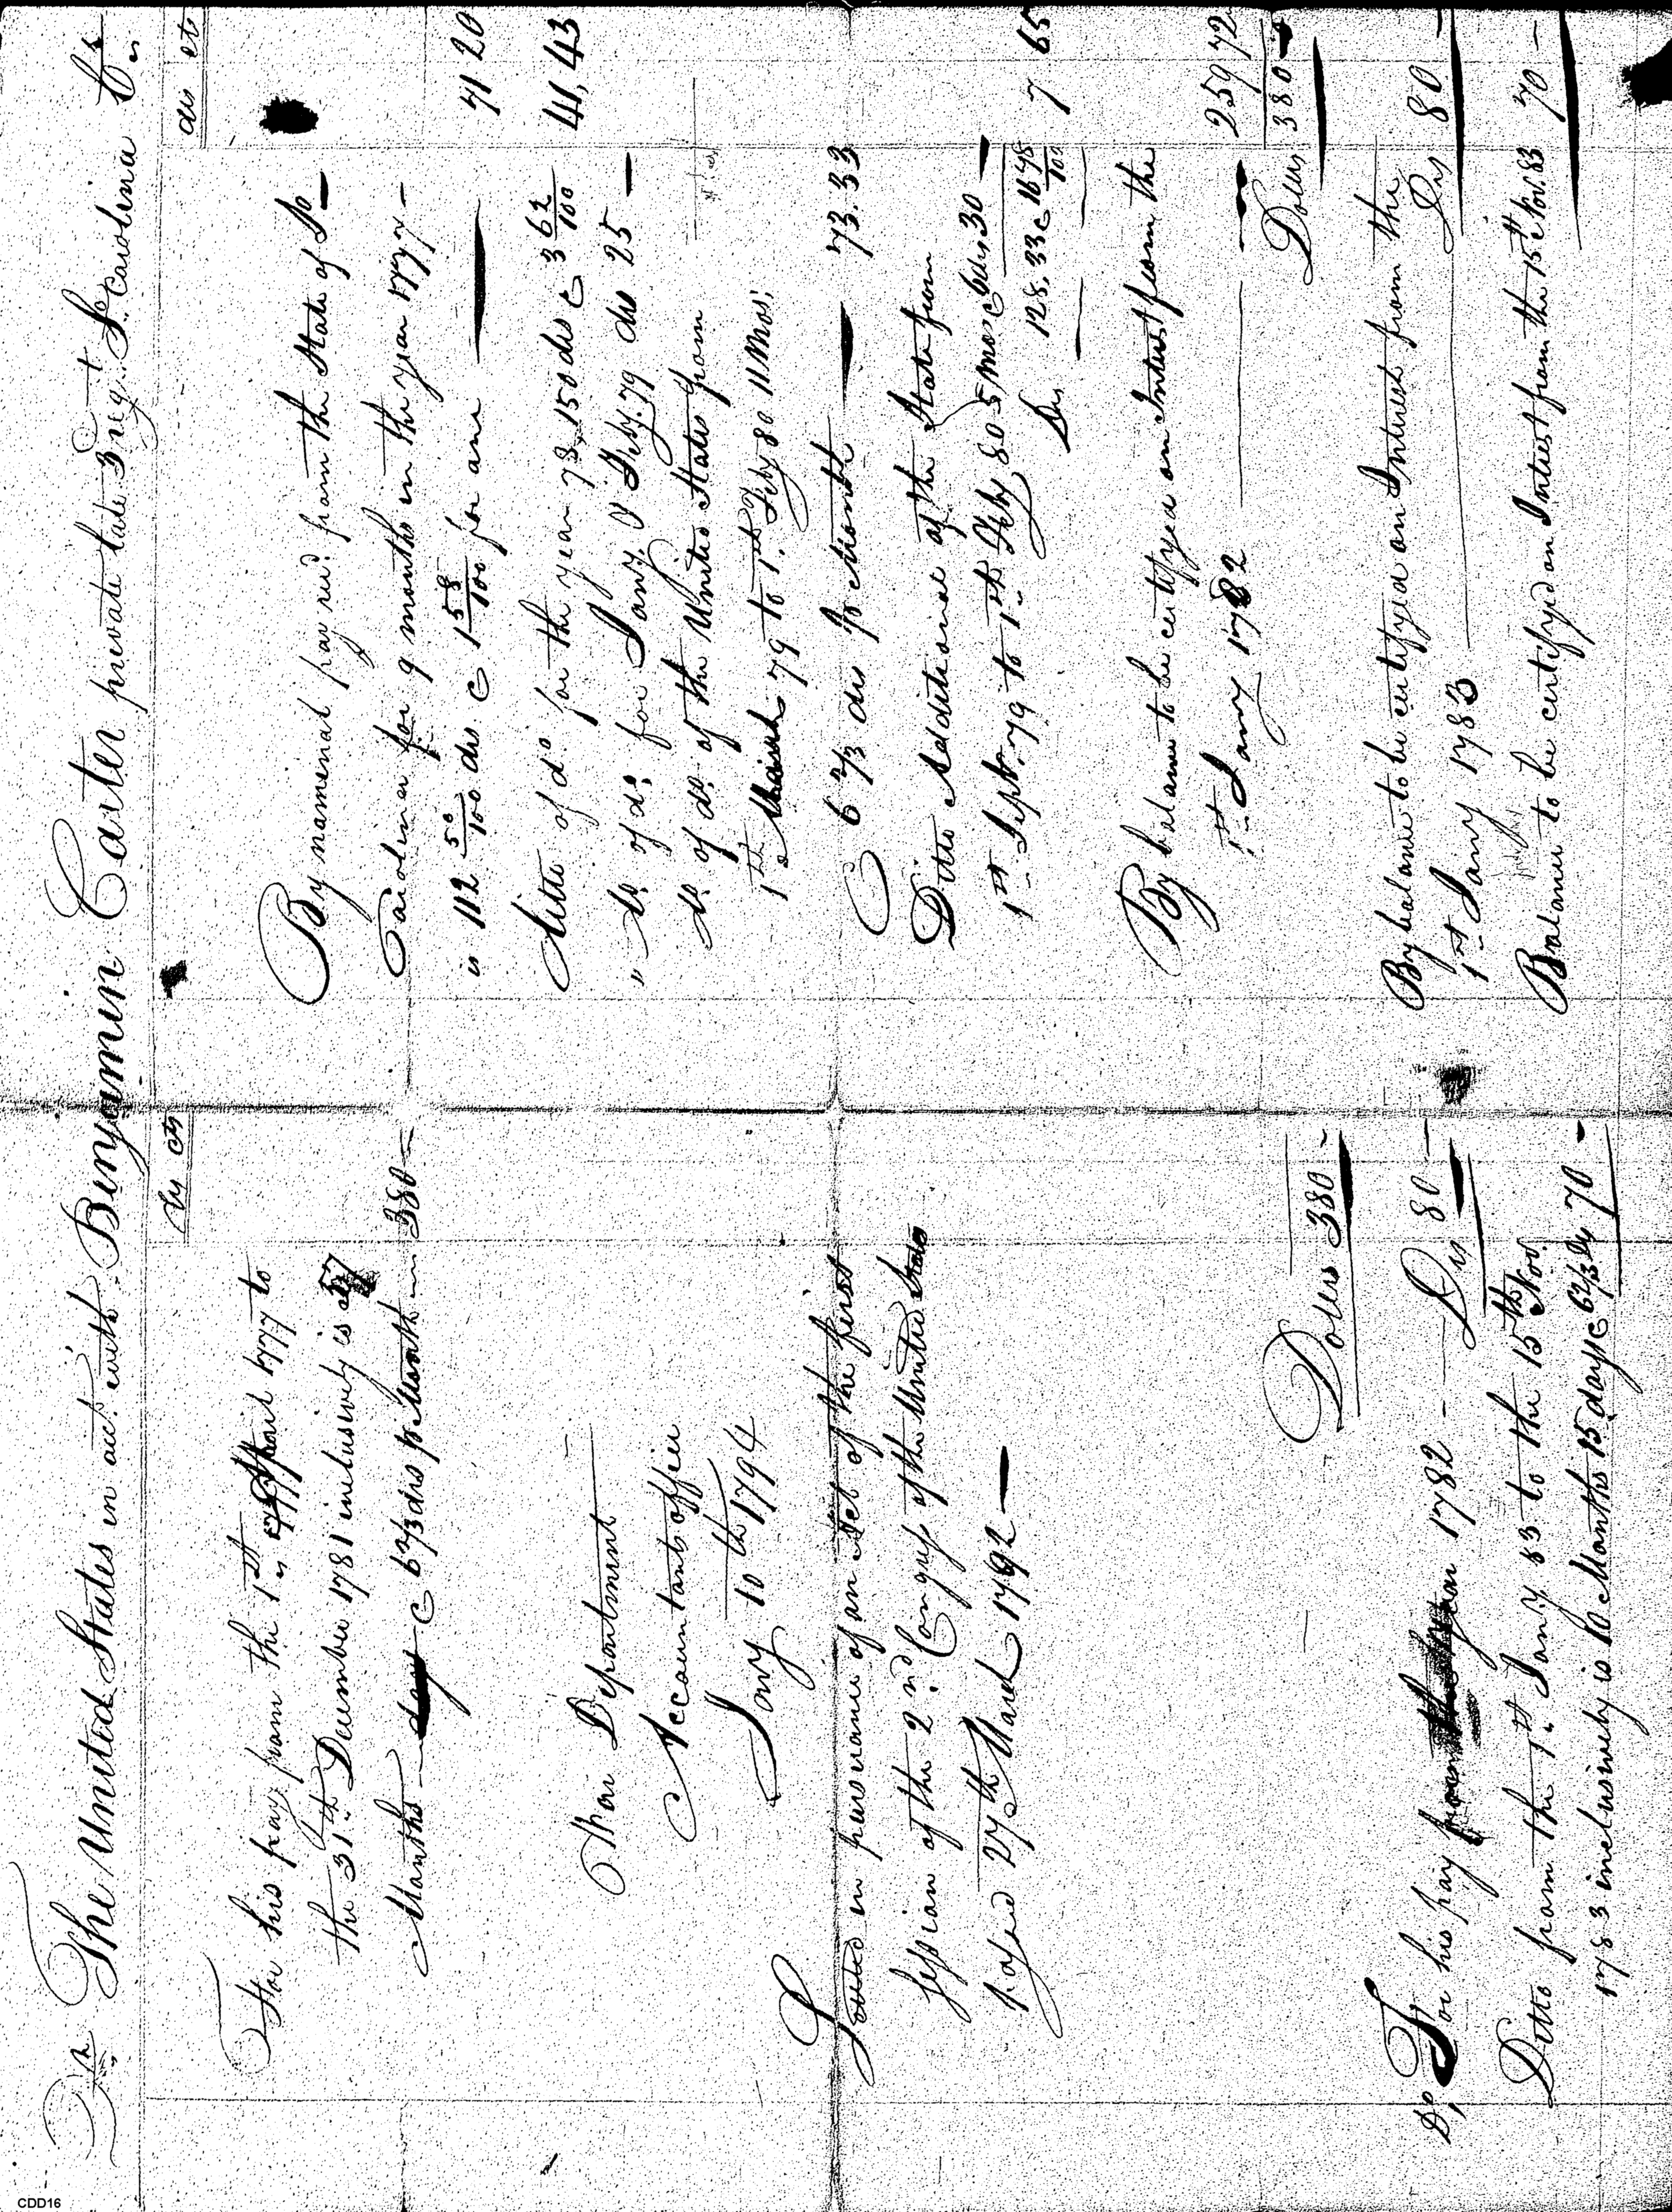 Dr The United States in acct. with Binyamin Carter private late 3 regt. So. Carolina Cr.
drs cts
For his pay from the 1st April 1777 to
the 31st December 1781 inclusively is 57
Months C 6 2/3 drs pr Month 380 —
War Department
Accountants office
Jany 10th 1794
Settled in pursuance of an Act of the first
session of the 2nd Congress of the United States
passed 27th March 1792 —
Dolers 380 -
Dr. For his pay year 1782 — Drs 80 —
Ditto from the 1st Jany 83 to the 15th Nov.
1783 inclusively is 10 Months 15 days C 6 2/3 drs 70 -
drs cts
By namenal pay recd. from the State of So —
Carolina for 9 months in the year 1777 —
is 112 50/100 drs C 1 58/100 for one 71 20
Ditto of do. for the year 78, 150 drs C 3 62/100 41,43
" Do. of do. for Jany. & Feby. 79 drs 25 —
Do. of do. of the United States from
1st March 79 to 1st Feby 80 11 Mos.
C 6 2/3 drs pr Month 73.33
Ditto Additional of the State from
1st Septr. 79 to 1st Feby 80 5 mos C 6 drs 30 —
Drs 128.33 C 1678/100 7 65
By balance to be certifyed on Interest from the
1st Jany 1782 259 72
Dolers 380 -
By balance to be certifyed on Interest from the
1st Jany 1783 Drs 80 —
Balance to be certifyd on Interest from the 15th Nov. 83 70 —
CDD16